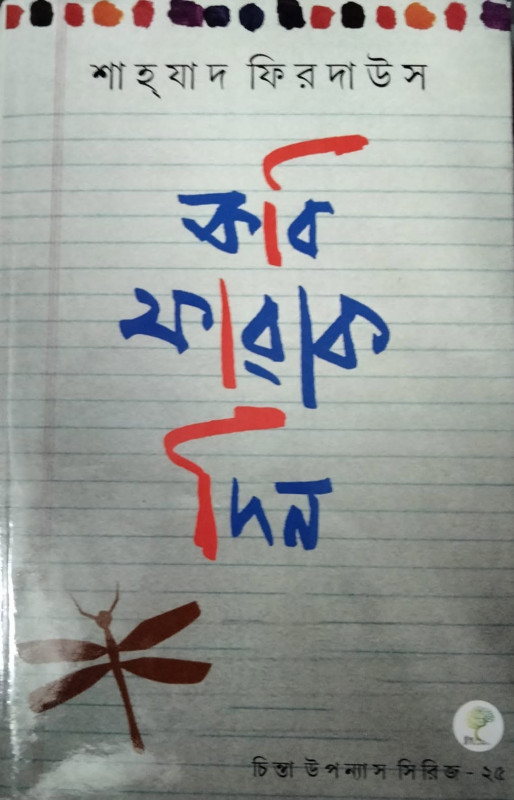 শাহ্যাদ ফিরদাউস
কবি
ফারাক
দিন
চিন্তা উপন্যাস সিরিজ - ২৫